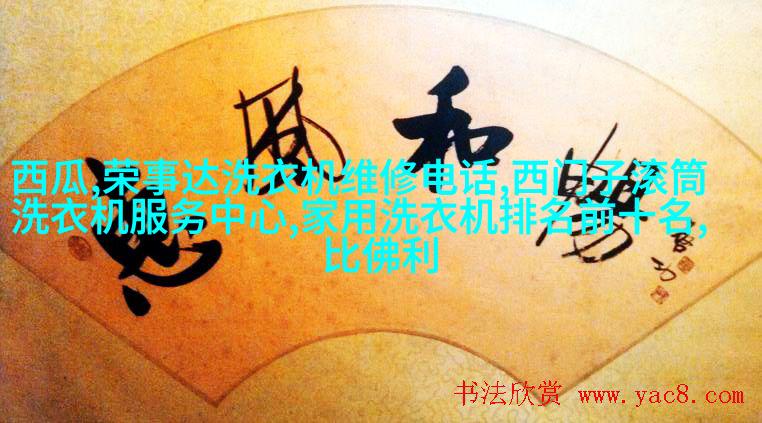 惠風和暢
启功
西瓜,荣事达洗衣机维修电话,西门子滚筒
洗衣机服务中心,家用洗衣机排名前十名,
比佛利
书法欣赏 www.yac8.com